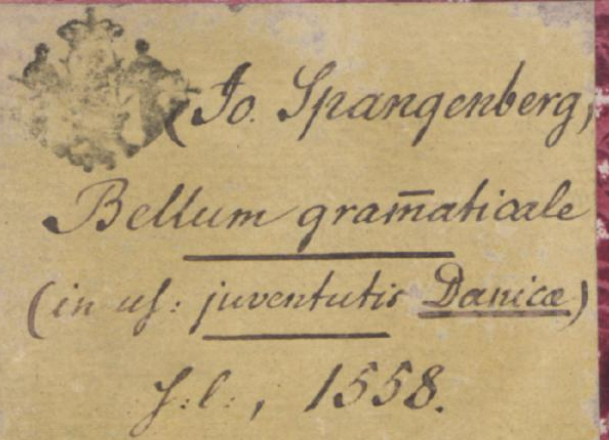 (Jo. Spangenberg)
Bellum gram̄aticale
(in uſ: juventutis Danicæ)
ſ: l:, 1558.